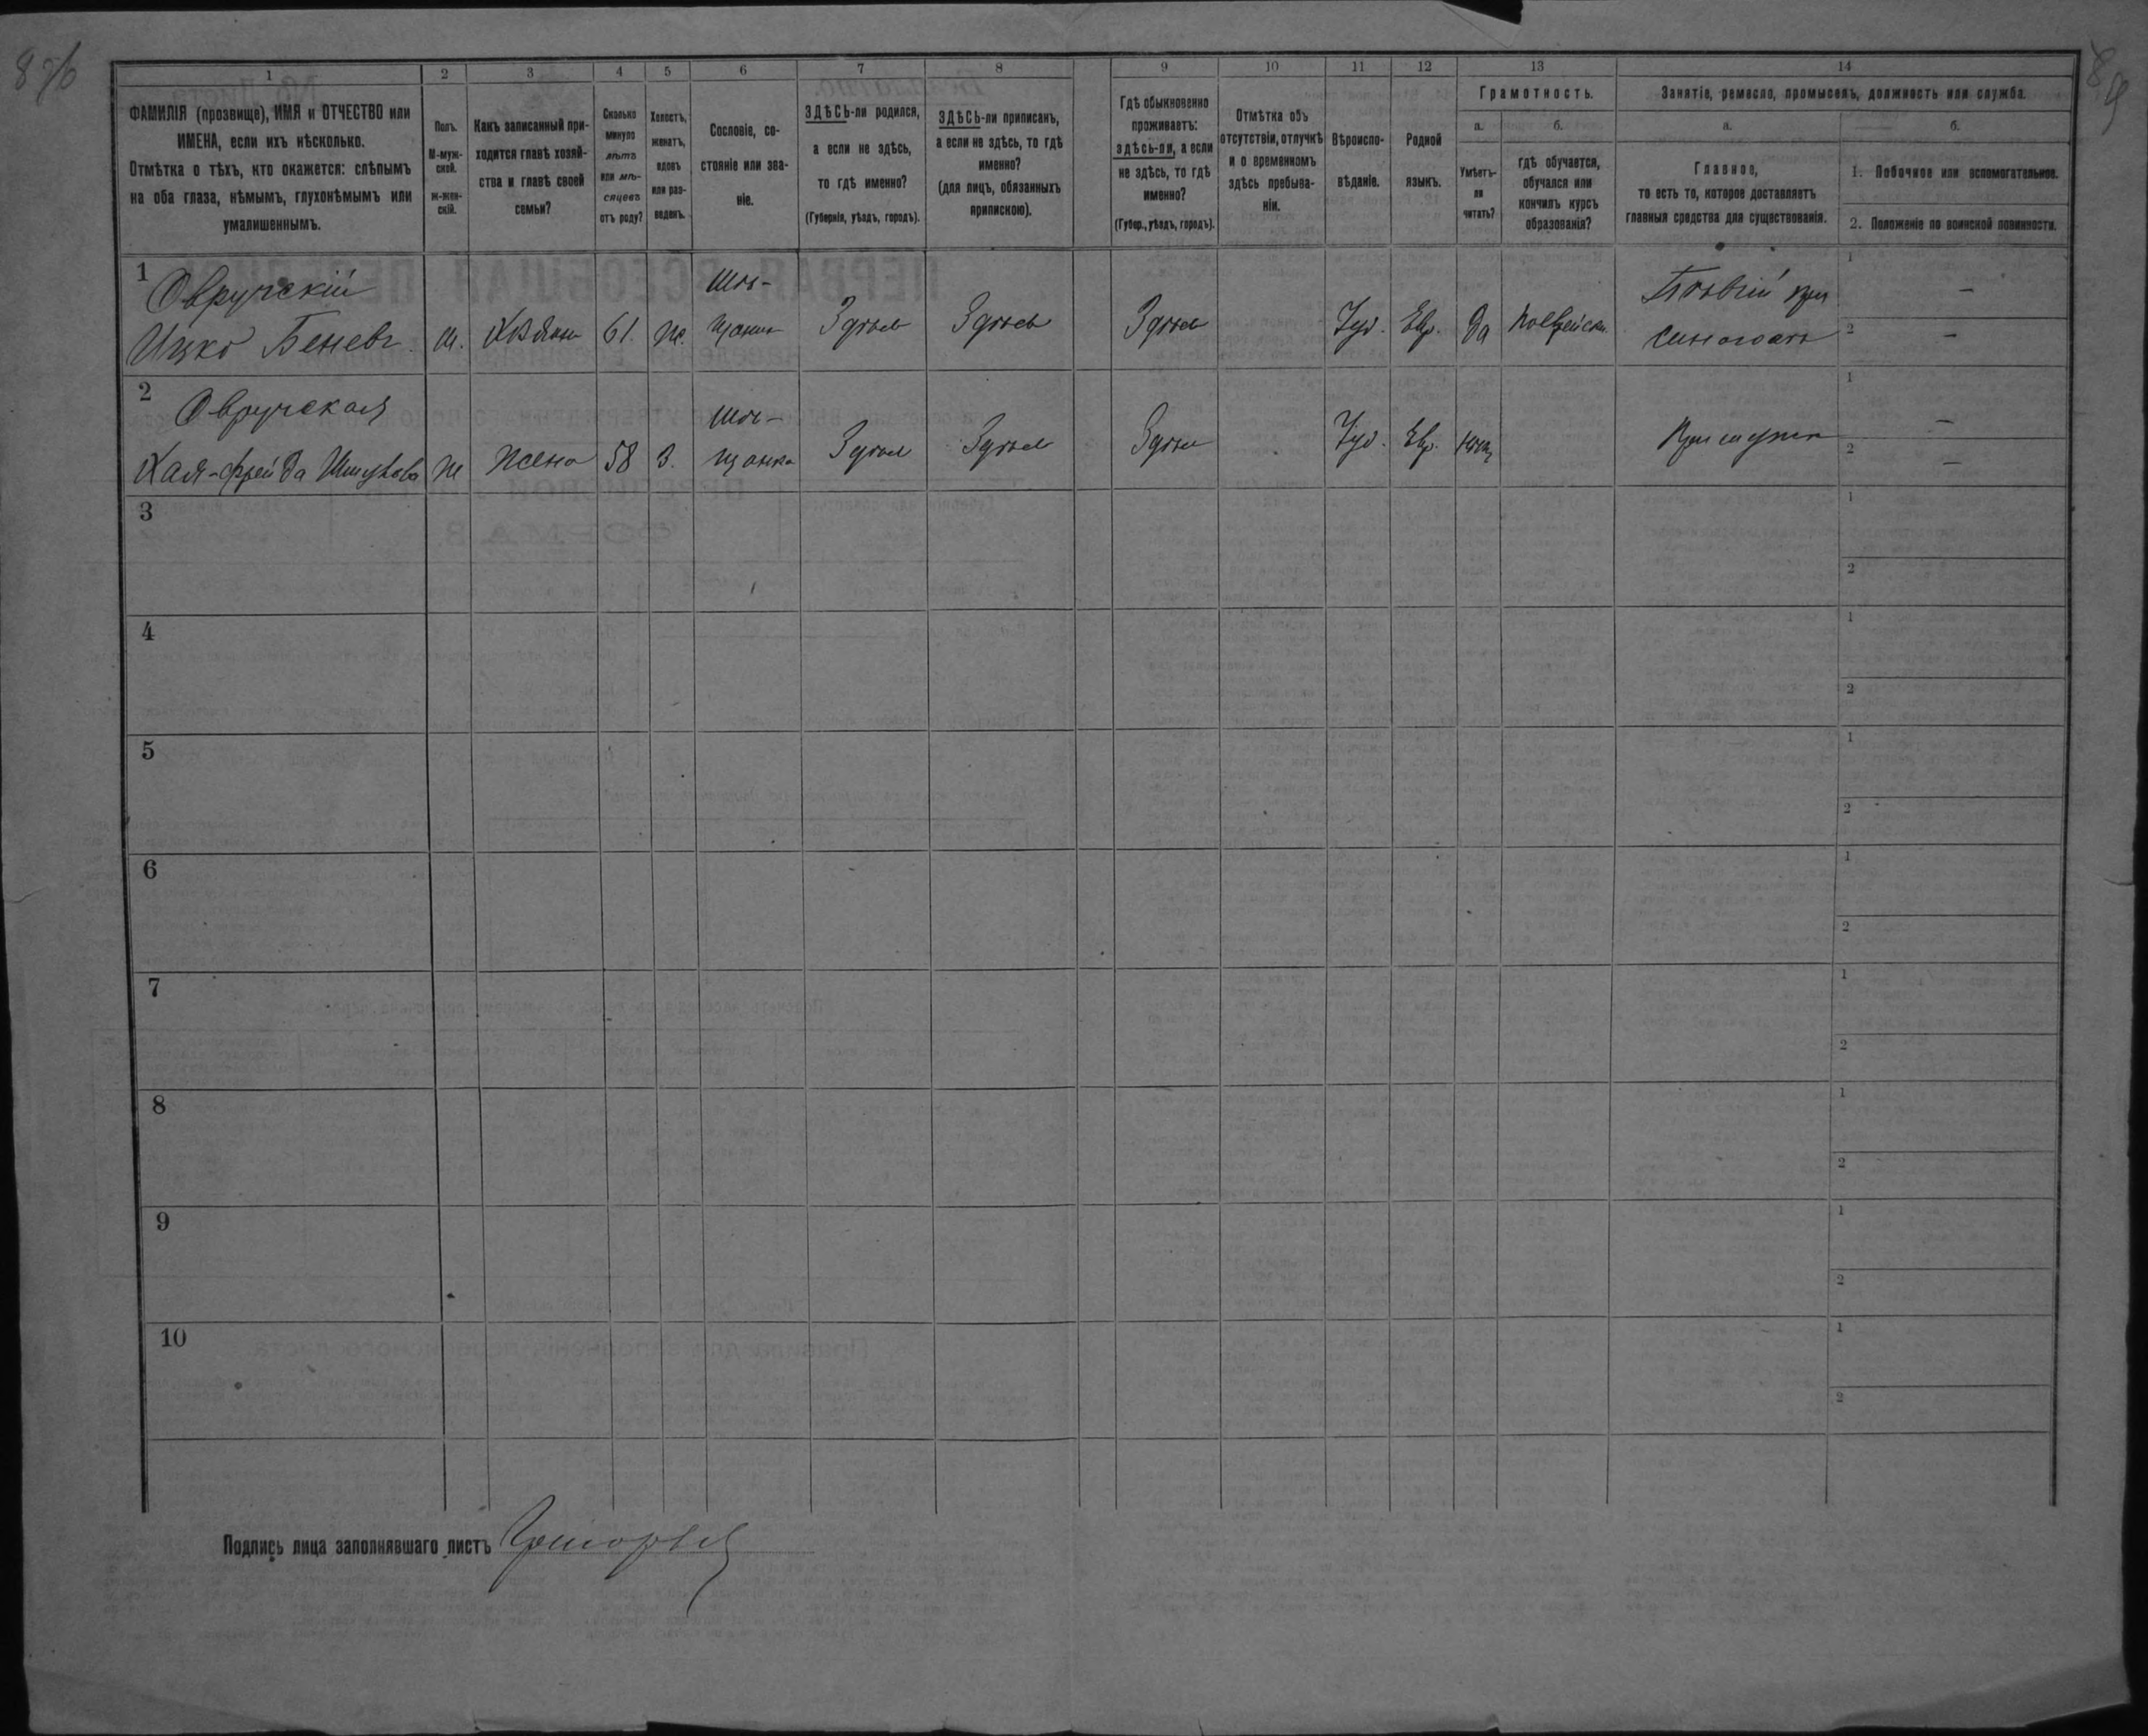 876
89
1
2
3
4
5
6
7
8
9
10
11
12
13
14
ФАМИЛІЯ (прозвище), ИМЯ и ОТЧЕСТВО или
ИМЕНА, если ихъ нѣсколько.
Отмѣтка о тѣхъ, кто окажется: слѣпымъ
на оба глаза, нѣмымъ, глухонѣмымъ или
умалишеннымъ.
Полъ.
М-муж-
ской.
ж-жен-
скій.
Какъ записанный при-
ходится главѣ хозяй-
ства и главѣ своей
семьи?
Сколько
минуло
лѣтъ
или мѣ-
сяцевъ
отъ роду?
Холостъ,
женатъ,
вдовъ
или раз-
веденъ.
Сословіе, со-
стояніе или зва-
ніе.
ЗДѢСЬ-ли родился,
а если не здѣсь,
то гдѣ именно?
(Губернія, уѣздъ, городъ).
ЗДѢСЬ-ли приписанъ,
а если не здѣсь, то гдѣ
именно?
(для лицъ, обязанныхъ
припискою).
Гдѣ обыкновенно
проживаетъ:
здѣсь-ли, а если
не здѣсь, то гдѣ
именно?
(Губер., уѣздъ, городъ).
Отмѣтка объ
отсутствіи, отлучкѣ
и о временномъ
здѣсь пребыва-
ніи.
Вѣроиспо-
вѣданіе.
Родной
языкъ.
Грамотность.
а.
Умѣетъ-
ли
читать?
б.
гдѣ обучается,
обучался или
кончилъ курсъ
образованія?
Занятіе, ремесло, промыселъ, должность или служба.
а.
Главное,
то есть то, которое доставляетъ
главныя средства для существованія.
б.
1. Побочное или вспомогательное.
2. Положеніе по воинской повинности.
1
Овручскій
Ицко Беневъ.
м.
Хозяин
61.
ж.
Мѣ-
щанин
Здѣсь
Здѣсь
Здѣсь
Іуд.
Евр.
да
по Еврейски.
при
синагогѣ
1 —
2 —
2
Овручская
Хая-Фрейда
ж
жена
58
З.
Мѣ-
щанка
Здѣсь
Здѣсь
Здѣсь
Іуд.
Евр.
нѣт
При мужѣ
1 —
2 —
3
1
2
4
1
2
5
1
2
6
1
2
7
1
2
8
1
2
9
1
2
10
1
2
Подпись лица заполнявшаго листъ